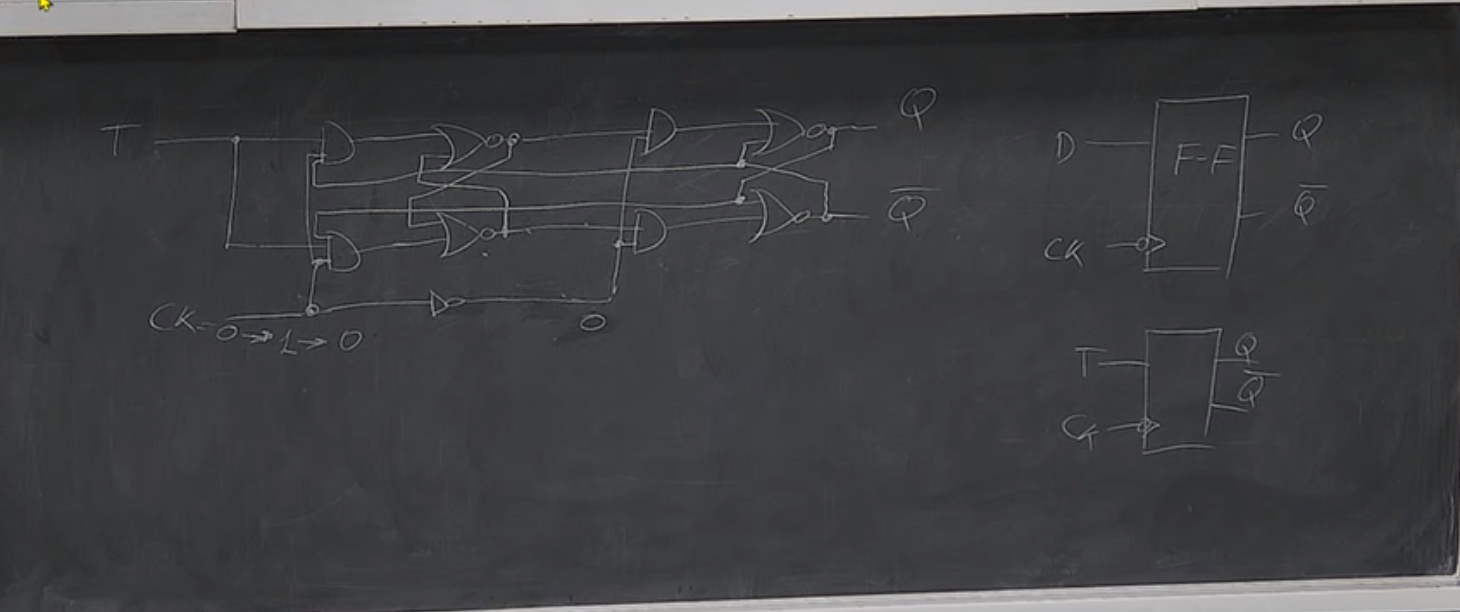 T
Q
Q̅
CK=0→1→0
0
D
F-F
Q
Q̅
CK
T
Q
Q̅
CK